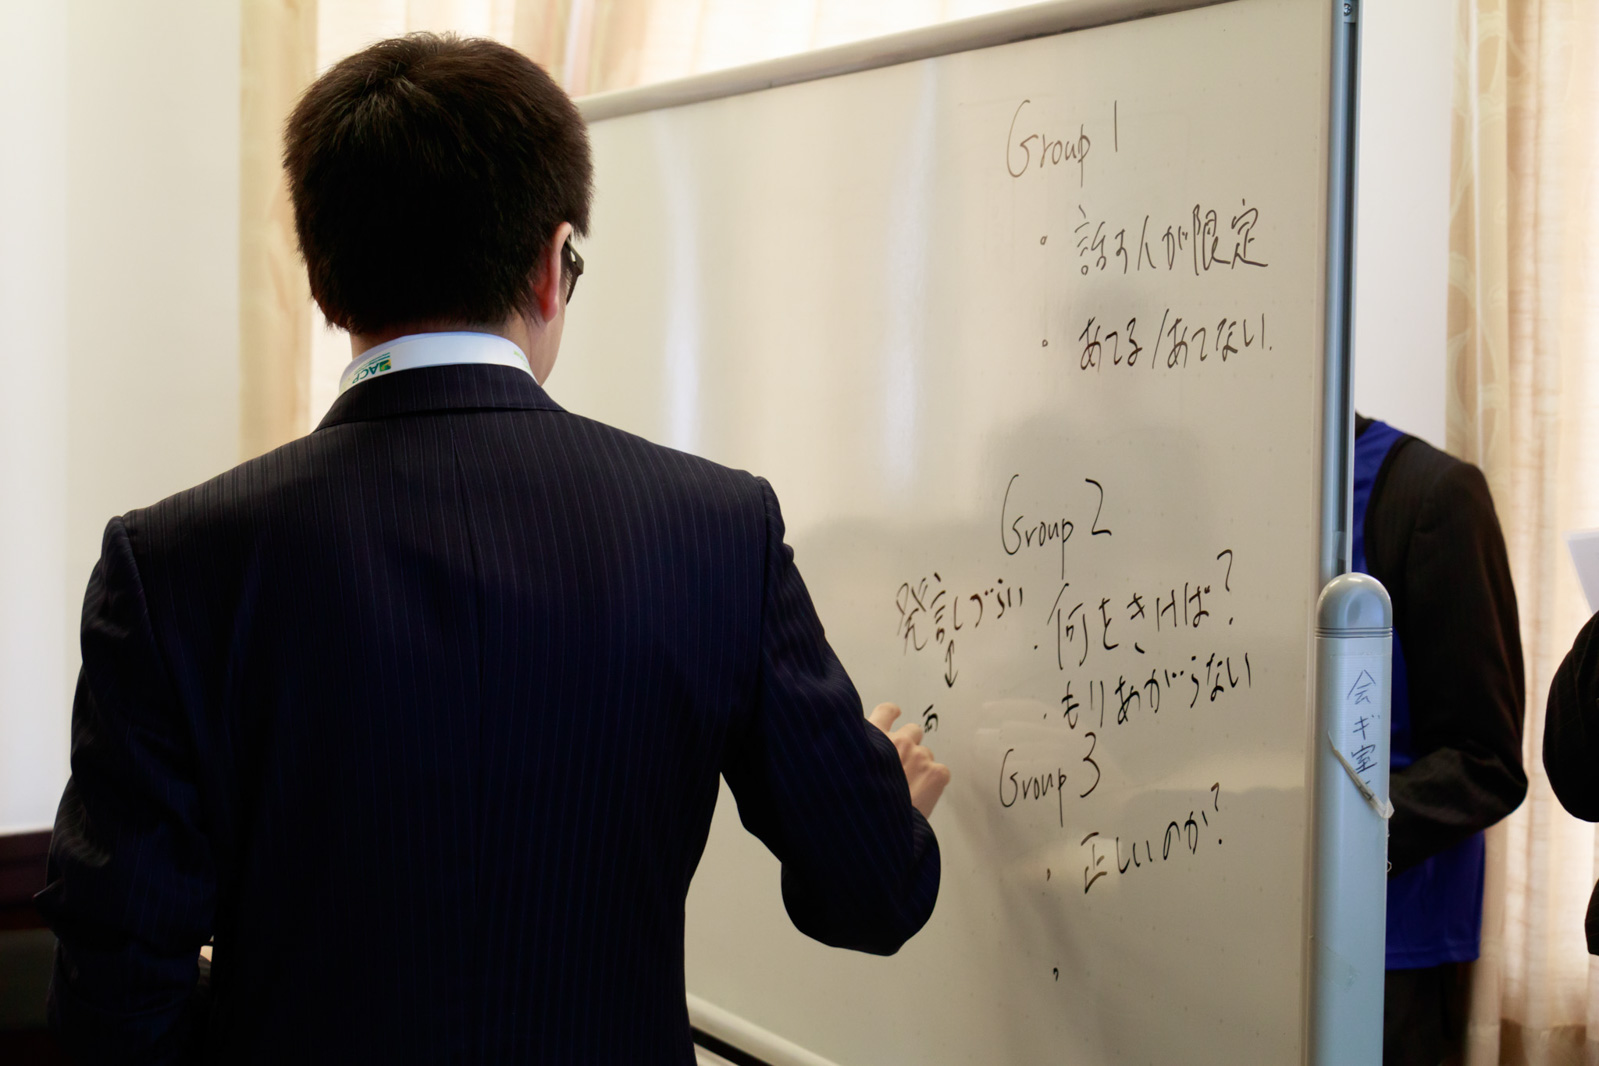 Group 1
・話す人が限定
・あてる/あてない.
Group 2
発言しづらい
↕
・何をきけば?
・もりあがらない
Group 3
・正しいのか?
・
会ギ室
ACP